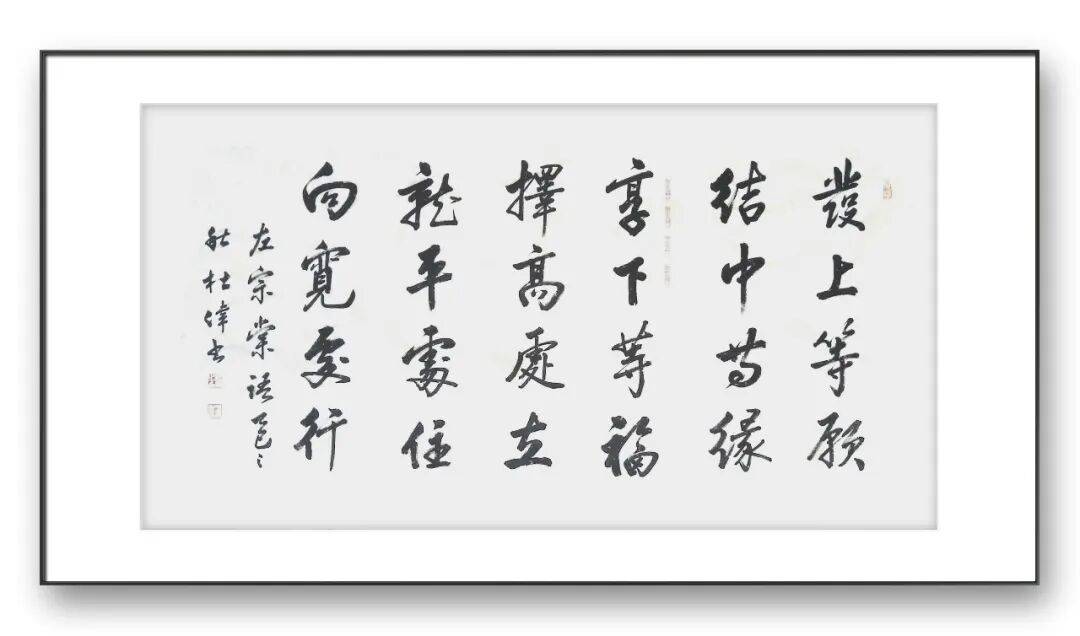 發上等願
結中等緣
享下等福
擇高處立
就平處住
向寬處行
左宗棠語乙巳之
秋杜偉書